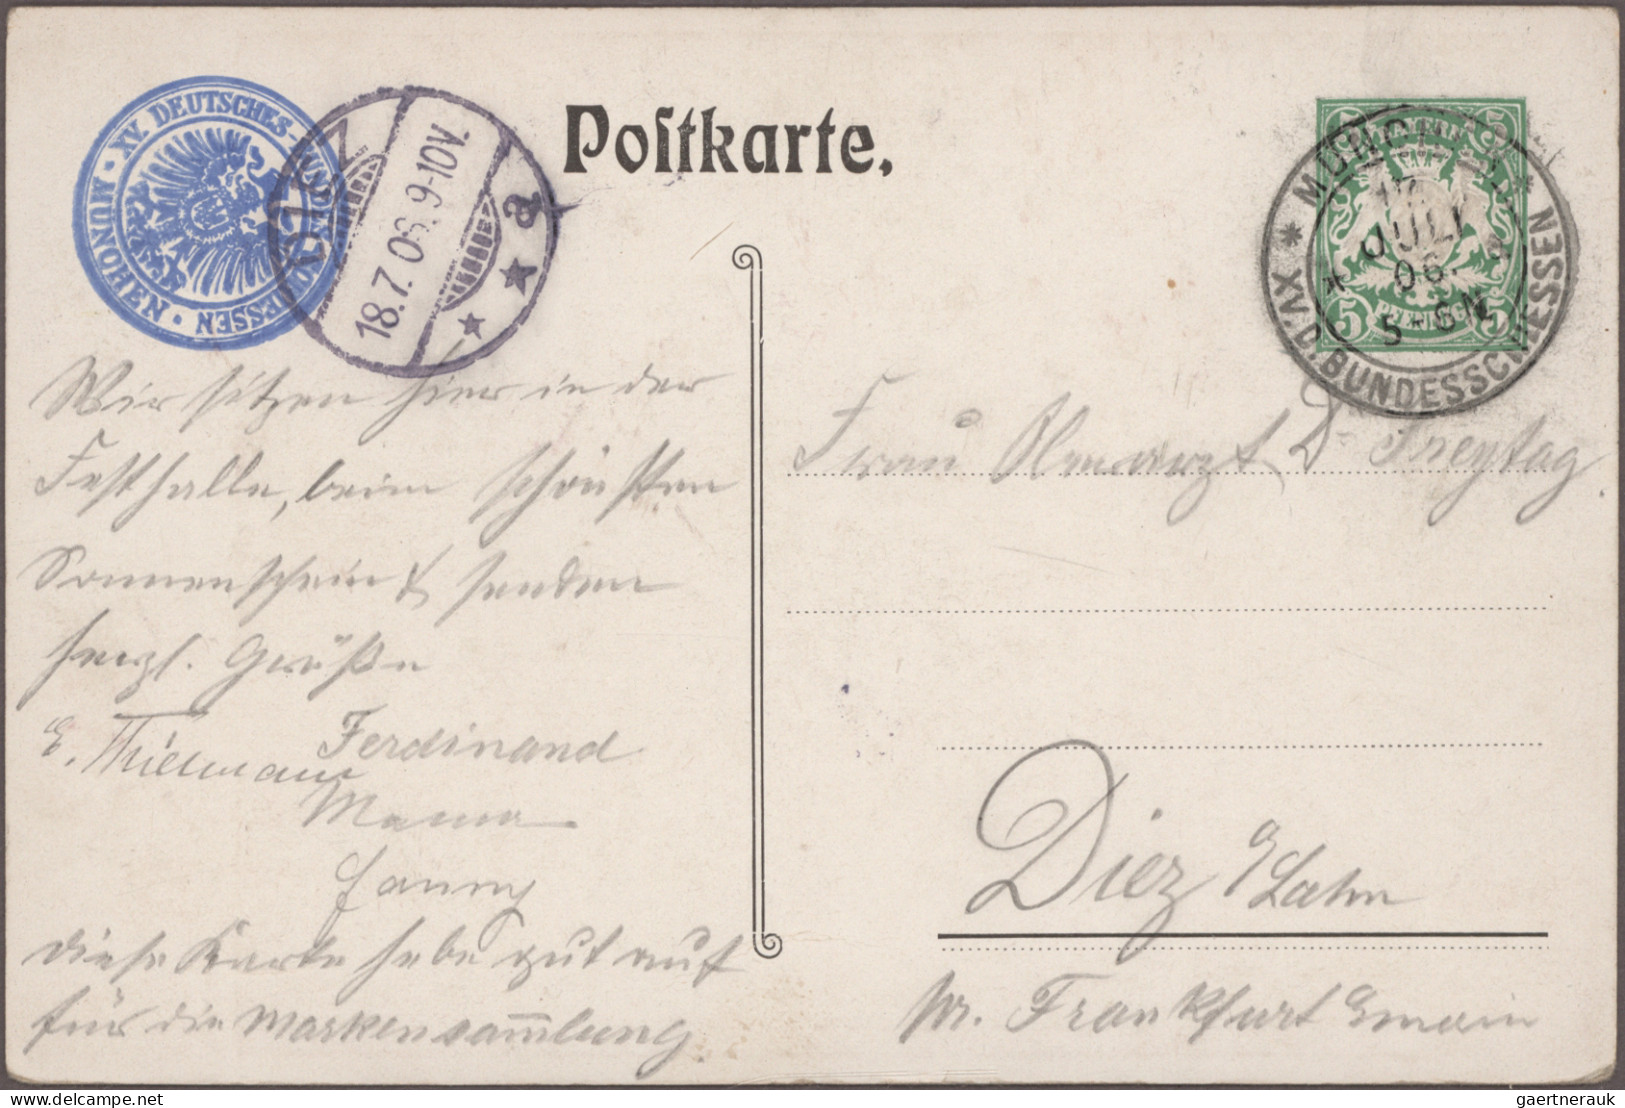 Postkarte.
XV. DEUTSCHES BUNDESSCHIESSEN · MÜNCHEN ·
DIEZ
18.7.06. 9-10V.
a
MÜNCHEN
BAYERN
17
JULI
06.
5-6N
5 PFENNIG 5
XV. D. BUNDESSCHIESSEN
Wir sitzen hier in der
Festhalle, beim schönsten
Sonnenschein & senden
herzl. Grüße
E. Thielmann
Ferdinand
Mama
Fanny
diese Karte hebe gut auf
für die Markensammlung
Frau Dr. Freytag.
Diez a/Lahn
pr. Frankfurt a/main
gaertnerauk